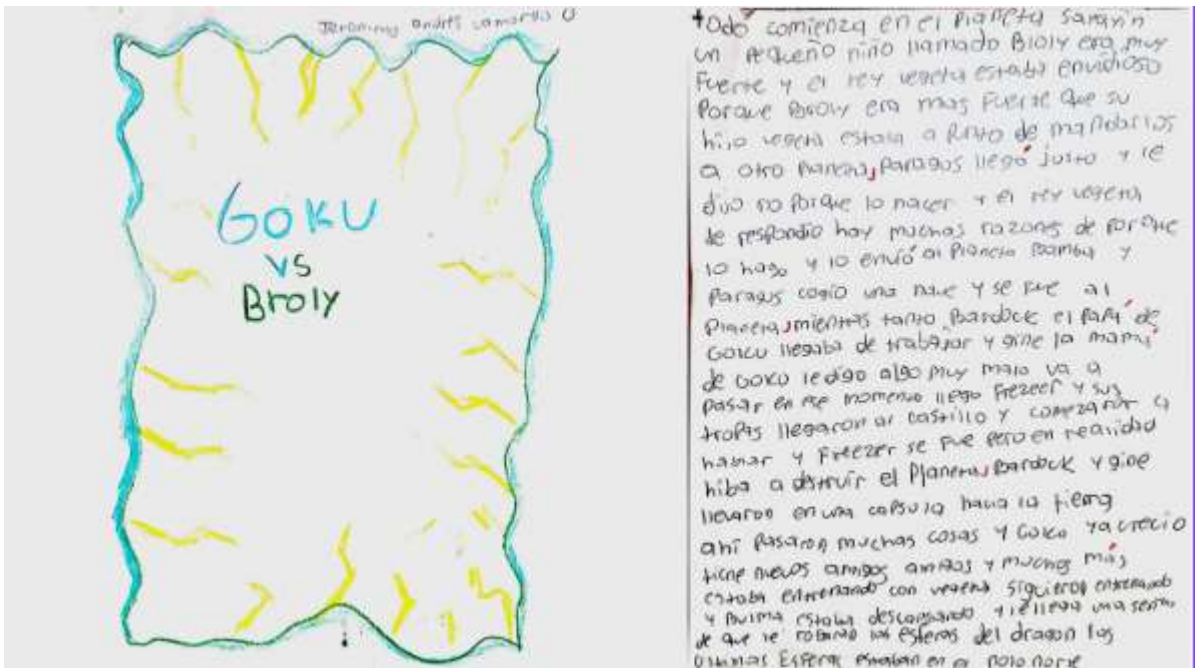 Jeronimo andrés camargo O
GOKU
VS
Broly
todo comienza en el Planeta Sarayin
un pequeño niño llamado Broly era muy
Fuerte y el rey vegeta estaba envidioso
Porque Broly era mas Fuerte que su
hijo vegeta estava a punto de mandarlos
a otro planeta, Paragus llegó justo y le
dijo no porque lo hacer y el rey vegeta
le respondio hay muchas razones de porque
lo hago y lo envió al Planeta Bamba y
Paragus cogio una nave y se fue al
Planeta, mientras tanto Bardock el Papá de
Goku llegaba de trabajar y gine la mamá
de Goku le digo algo muy malo va a
pasar en ese momento llego Frezeer y sus
tropas llegaron al castillo y comezaron a
hablar y Freezer se fue pero en realidad
hiba a dstruir el Planeta, Bardock y gine
llevaron en una capsula hacia la tierra
ahí Pasaron muchas cosas y Goku ya crecio
tiene nuevos amigos amigas y muchos más
estaba entrenando con vegeta siguieron entrenando
y Bulma estaba descansando y le llego una señal
de que le robaron las esferas del dragon las
ultimas Esferas estaban en el polo norte